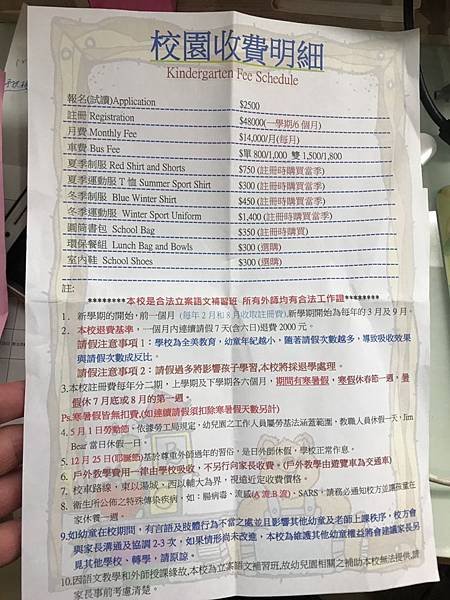 校園收費明細
Kindergarten Fee Schedule
報名(試讀)Application $2500
註冊 Registration $48000(一學期/6 個月)
月費 Monthly Fee $14,000/月(每月)
車費 Bus Fee $單 800/1,000 雙 1,500/1,800
夏季制服 Red Shirt and Shorts $750 (註冊時購買當季)
夏季運動服 T 恤 Summer Sport Shirt $300 (註冊時購買當季)
冬季制服 Blue Winter Shirt $450 (註冊時購買當季)
冬季運動服 Winter Sport Uniform $1,400 (註冊時購買當季)
圓筒書包 School Bag $350 (註冊時購買)
環保餐組 Lunch Bag and Bowls $300 (選購)
室內鞋 School Shoes $300 (選購)
註:
********本校是合法立案語文補習班 所有外師均有合法工作證********
1. 新學期的開始，前一個月 (每年 2 月和 8 月收取註冊費),新學期開始為每年的 3 月及 9 月。
2. 本校退費基準，一個月內連續請假 7 天(含六日)退費 2000 元。
請假注意事項 1：學校為全美教育，幼童年紀越小，隨著請假次數越多，導致吸收效果
與請假次數成反比。
請假注意事項 2：請假過多將影響孩子學習,本校將採退學處理。
3.本校註冊費每年分二期，上學期及下學期各六個月，期間有寒暑假，寒假休春節一週，暑
假休 7 月底或 8 月的第一週。
Ps.寒暑假皆無扣費.(如連續請假須扣除寒暑假天數另計)
4. 5 月 1 日勞動節，依據勞工局規定，幼兒園之工作人員屬勞基法涵蓋範圍，教職人員休假一天，Jim
Bear 當日休假一日。
5. 12 月 25 日(耶誕節)基於尊重外師過年的習俗，是日外師休假，學校正常作息。
6. 戶外教學費用一律由學校吸收，不另行向家長收費。(戶外教學由遊覽車為交通車)
7. 校車路線，東以湯城，西以輔大為界，視遠近定收費價格。
8. 衛生所公佈之特殊傳染疾病，如：腸病毒、流感(A 流.B 流)、SARS，請務必通知校方並讓孩童在
家休養一週。
9.如幼童在校期間，有言語及肢體行為不當之處並且影響其他幼童及老師上課秩序，校方會
與家長溝通及協調 2-3 次，如果情形尚未改進，本校為維護其他幼童權益將會建議家長另
見其他學校、轉學，請原諒。
10.因語文教學和外師授課緣故,本校為立案語文補習班,故幼兒園相關之補助本校無法提供,請
家長事前考慮清楚。